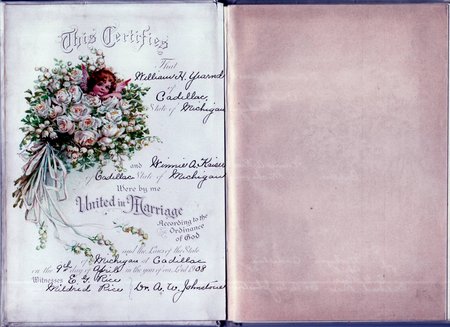 This Certifies
That
William H. Yearnd
of
Cadillac,
State of Michigan
and Winnie A. Kaiser
of Cadillac State of Michigan
Were by me
United in Marriage
According to the
Ordinance
of God
and the Laws of the State
of Michigan at Cadillac
on the 9th day of April in the year of our Lord 1908
Witnesses E. G. Rice
Mildred Rice Dr. A. W. Johnstone